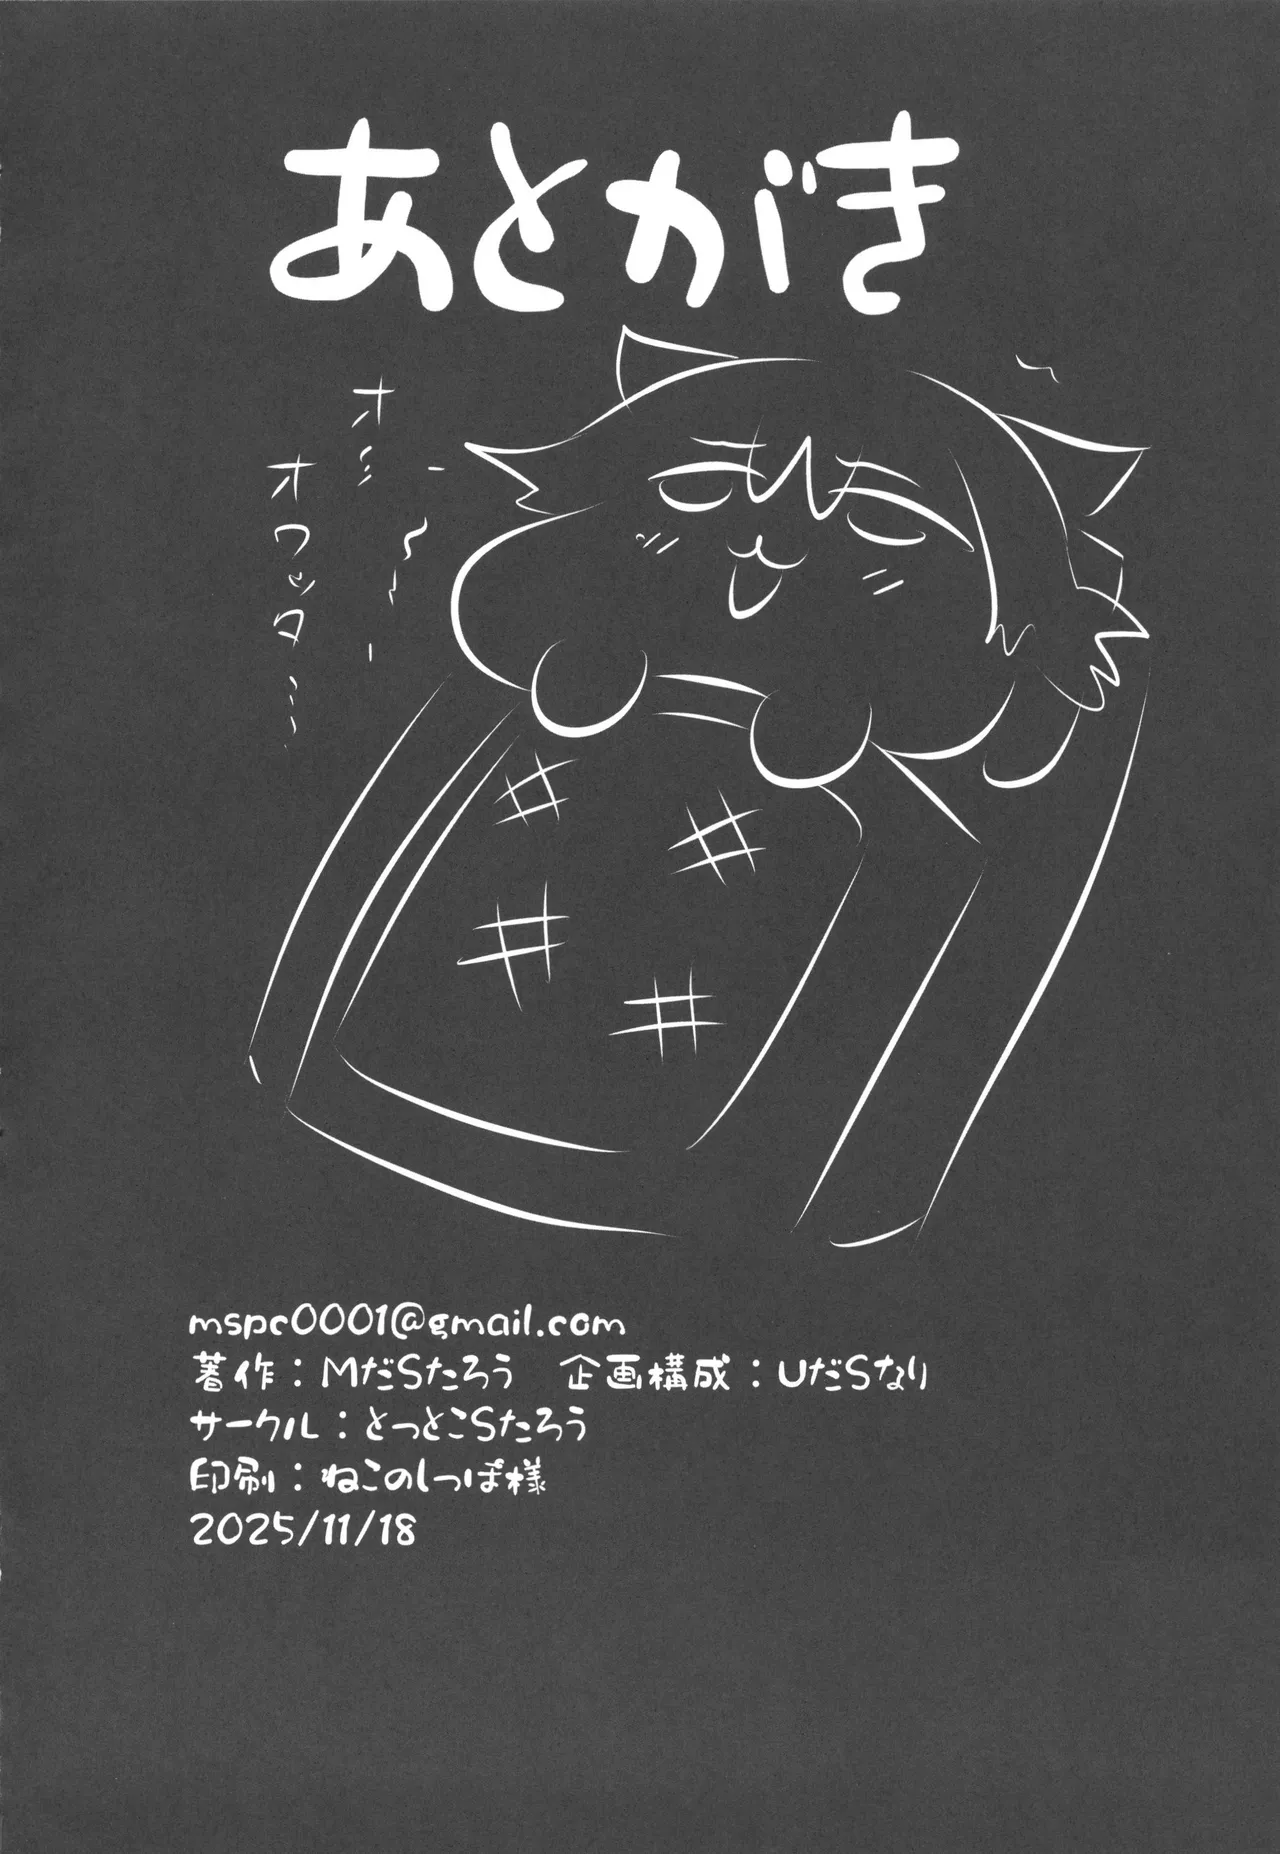 あとがき
オ…
オワッタ……
mspc0001@gmail.com
著作：MだSたろう　企画構成：UだSなり
サークル：とっとこSたろう
印刷：ねこのしっぽ様
2025/11/18